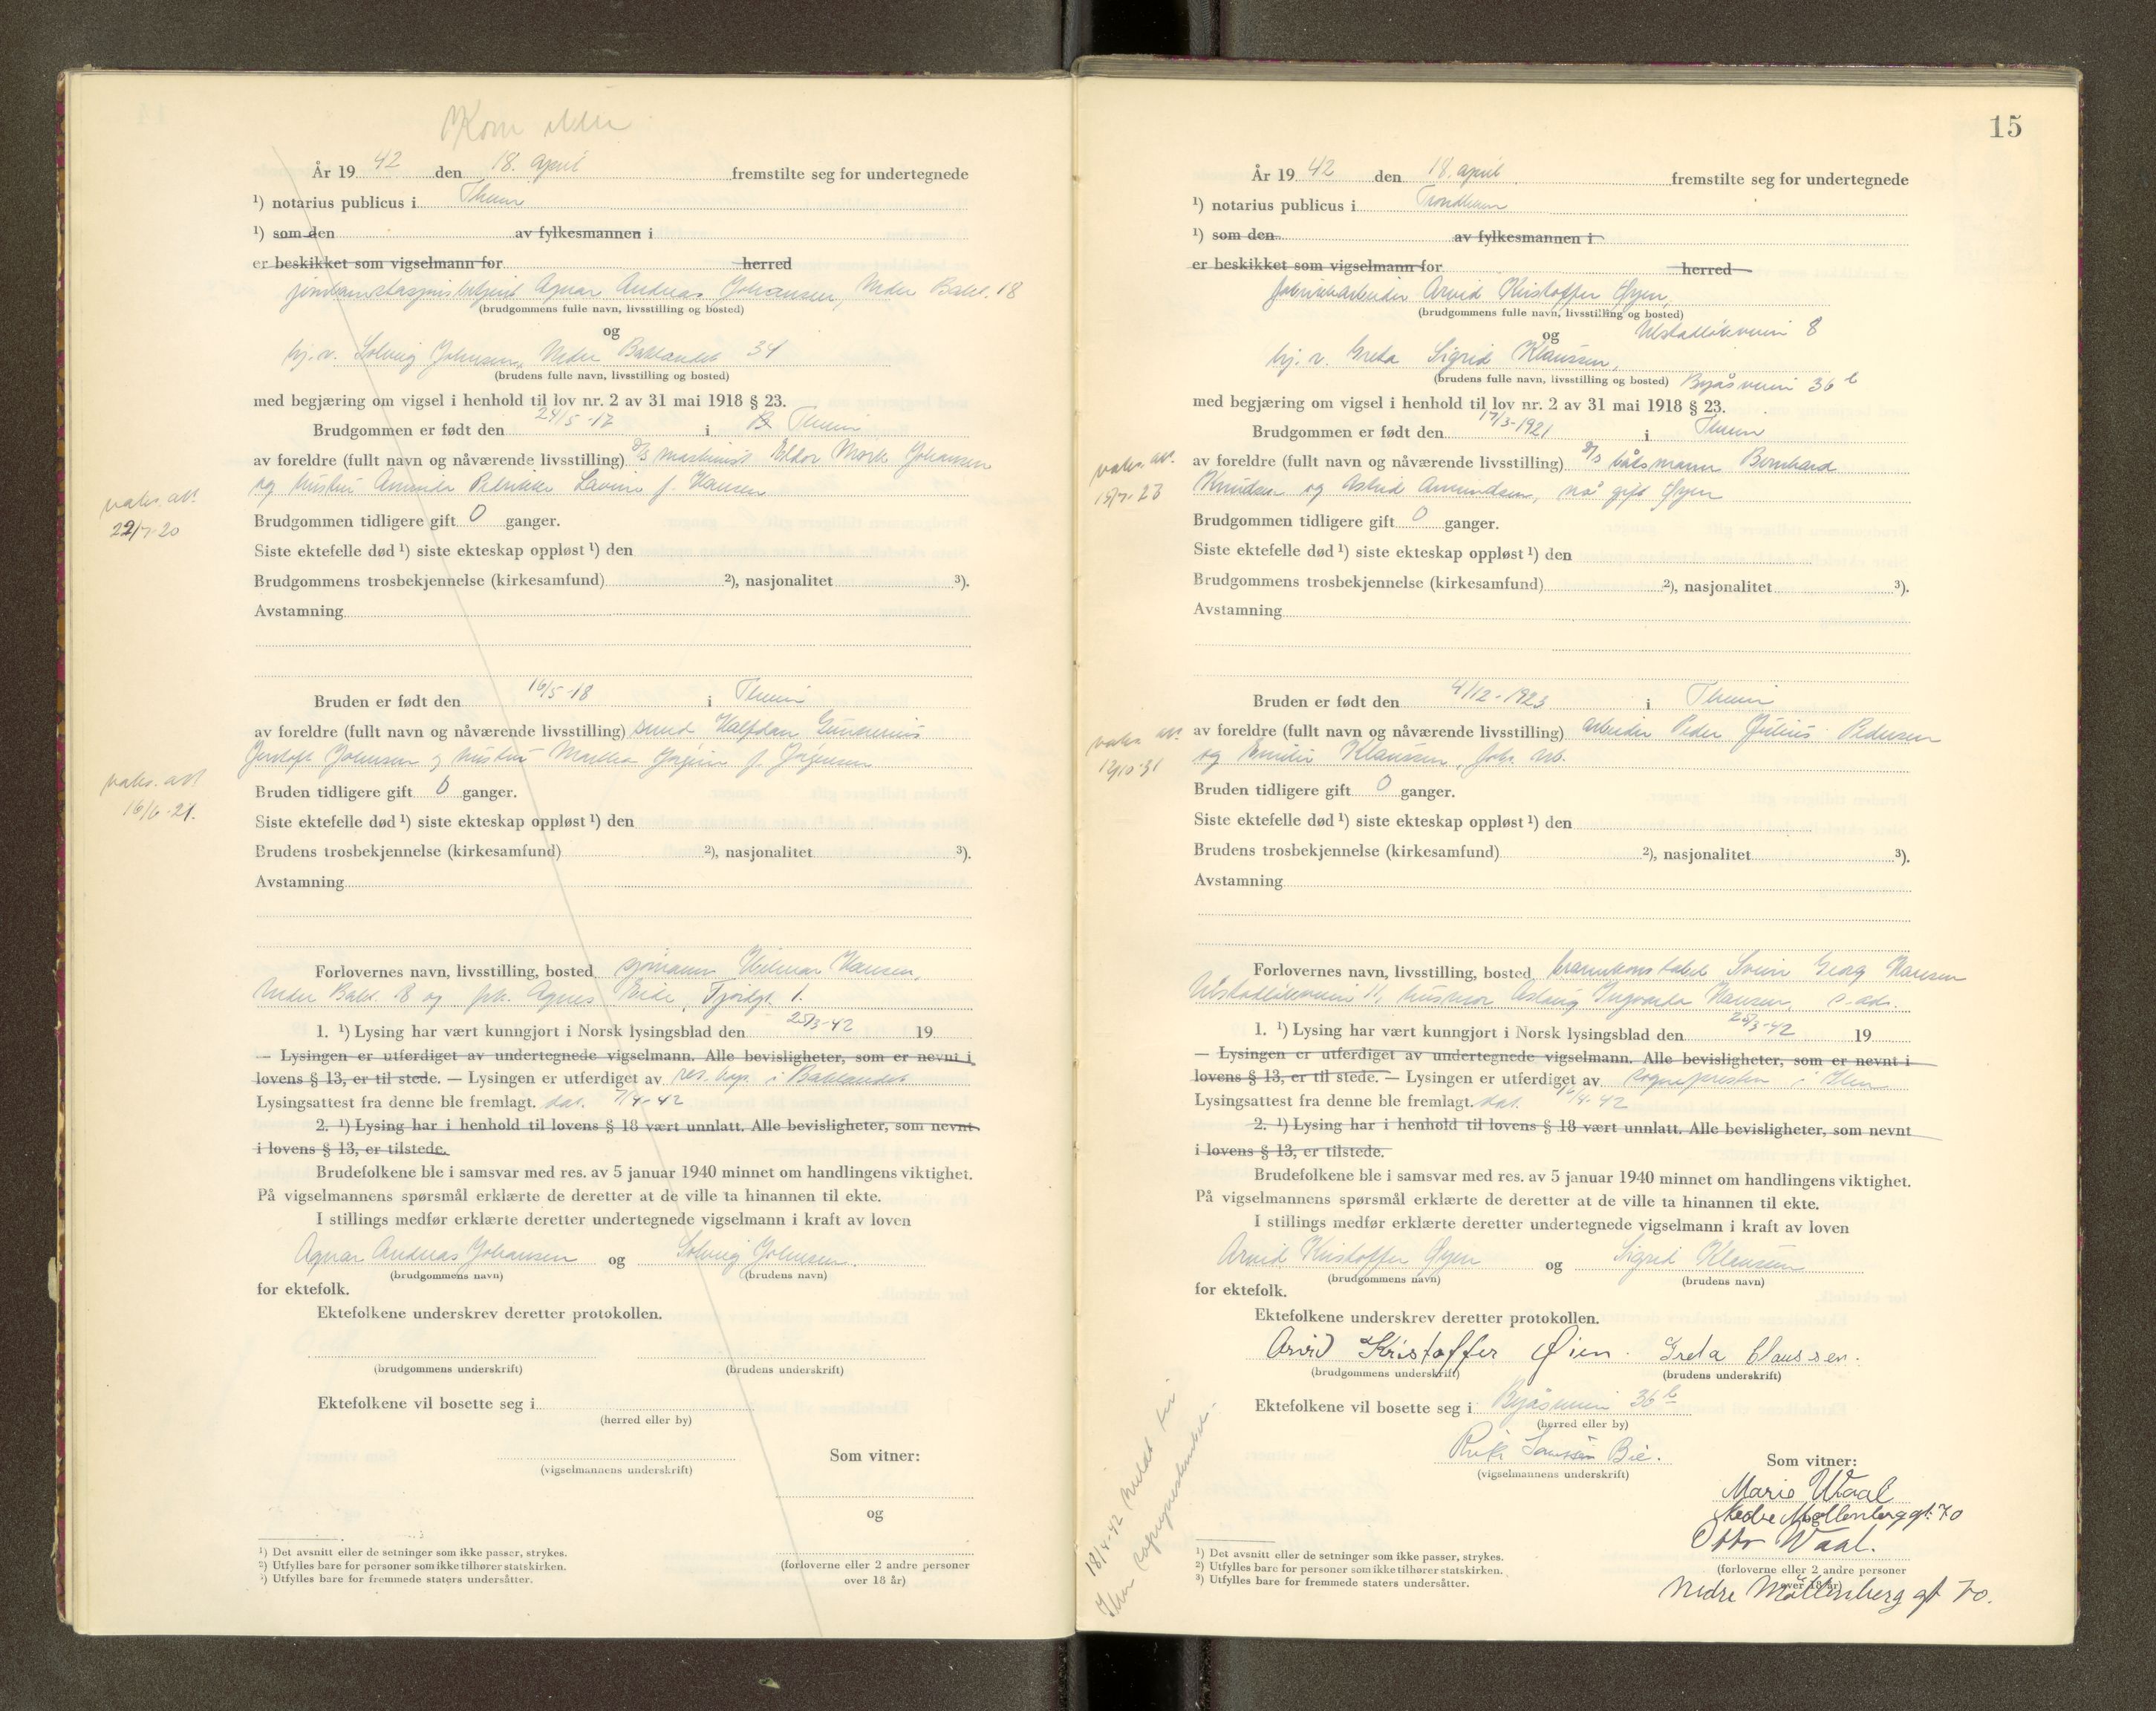 Kom ikke
År 19 42 den 18. april fremstilte seg for undertegnede
¹) notarius publicus i Theim
¹) som den av fylkesmannen i
er beskikket som vigselmann for herred
Agnar Andreas Johansen, Nedre Bakl. 18
(brudgommens fulle navn, livsstilling og bosted)
og
hj.v. Solveig Johnsen, Nedre Baklandet 34
(brudens fulle navn, livsstilling og bosted)
med begjæring om vigsel i henhold til lov nr. 2 av 31 mai 1918 § 23.
Brudgommen er født den 24/5-17 i Theim
av foreldre (fullt navn og nåværende livsstilling) maskinist Eldor Mork Johansen
og hustru Lavine f. Hansen
vaks. att.
22/7-20
Brudgommen tidligere gift 0 ganger.
Siste ektefelle død ¹) siste ekteskap oppløst ¹) den
Brudgommens trosbekjennelse (kirkesamfund) ²), nasjonalitet ³).
Avstamning
Bruden er født den 16/5-18 i Theim
av foreldre (fullt navn og nåværende livsstilling) smed Halfdan Gunnerius
Johnsen og hustru f. Jørgensen
vaks. att.
16/6-21.
Bruden tidligere gift 0 ganger.
Siste ektefelle død ¹) siste ekteskap oppløst ¹) den
Brudens trosbekjennelse (kirkesamfund) ²), nasjonalitet ³).
Avstamning
Forlovernes navn, livsstilling, bosted sjømann Hilmar Hansen,
Nedre Bakl. 18 og frk. Agnes Eide, Fjordgt. 1.
1. ¹) Lysing har vært kunngjort i Norsk lysingsblad den 25/3-42 19
— Lysingen er utferdiget av undertegnede vigselmann. Alle bevisligheter, som er nevnt i
lovens § 13, er til stede. — Lysingen er utferdiget av res. kap. i Baklandet
Lysingsattest fra denne ble fremlagt. dat. 7/4-42
2. ¹) Lysing har i henhold til lovens § 18 vært unnlatt. Alle bevisligheter, som nevnt
i lovens § 13, er tilstede.
Brudefolkene ble i samsvar med res. av 5 januar 1940 minnet om handlingens viktighet.
På vigselmannens spørsmål erklærte de deretter at de ville ta hinannen til ekte.
I stillings medfør erklærte deretter undertegnede vigselmann i kraft av loven
Agnar Andreas Johansen og Solveig Johnsen.
(brudgommens navn) (brudens navn)
for ektefolk.
Ektefolkene underskrev deretter protokollen.
(brudgommens underskrift) (brudens underskrift)
Ektefolkene vil bosette seg i
(herred eller by)
(vigselmannens underskrift)
Som vitner:
og
(forloverne eller 2 andre personer
over 18 år)
¹) Det avsnitt eller de setninger som ikke passer, strykes.
²) Utfylles bare for personer som ikke tilhører statskirken.
³) Utfylles bare for fremmede staters undersåtter.
15
År 19 42 den 18. april fremstilte seg for undertegnede
¹) notarius publicus i Trondheim
¹) som den av fylkesmannen i
er beskikket som vigselmann for herred
fabrikkarbeider Arvid Kristoffer Øyen,
(brudgommens fulle navn, livsstilling og bosted)
og Ulstadløkveien 8
hj. v. Greta Sigrid Klaussen,
(brudens fulle navn, livsstilling og bosted) Byåsveien 36 b
med begjæring om vigsel i henhold til lov nr. 2 av 31 mai 1918 § 23.
Brudgommen er født den 17/3-1921 i Theim
av foreldre (fullt navn og nåværende livsstilling) båtsmann Bernhard
Knudsen og Astrid Amundsen, nå gift Øyen
vaks. att.
Brudgommen tidligere gift 0 ganger.
Siste ektefelle død ¹) siste ekteskap oppløst ¹) den
Brudgommens trosbekjennelse (kirkesamfund) ²), nasjonalitet ³).
Avstamning
Bruden er født den 4/12-1923 i Theim
av foreldre (fullt navn og nåværende livsstilling) arbeider Peder Julius Pedersen
og Emilie Klaussen, fabr. arb.
vaks. att.
12/10-31
Bruden tidligere gift 0 ganger.
Siste ektefelle død ¹) siste ekteskap oppløst ¹) den
Brudens trosbekjennelse (kirkesamfund) ²), nasjonalitet ³).
Avstamning
Forlovernes navn, livsstilling, bosted brannkonstabel Svein Georg Hansen
Ulstadløkveien 11, husmor Aslaug Ingvarda Hansen, s. adr.
1. ¹) Lysing har vært kunngjort i Norsk lysingsblad den 25/3-42 19
— Lysingen er utferdiget av undertegnede vigselmann. Alle bevisligheter, som er nevnt i
lovens § 13, er til stede. — Lysingen er utferdiget av sognepresten i Ilen
Lysingsattest fra denne ble fremlagt. dat. 16/4-42
2. ¹) Lysing har i henhold til lovens § 18 vært unnlatt. Alle bevisligheter, som nevnt
i lovens § 13, er tilstede.
Brudefolkene ble i samsvar med res. av 5 januar 1940 minnet om handlingens viktighet.
På vigselmannens spørsmål erklærte de deretter at de ville ta hinannen til ekte.
I stillings medfør erklærte deretter undertegnede vigselmann i kraft av loven
Arvid Kristoffer Øyen og Sigrid Klaussen
(brudgommens navn) (brudens navn)
for ektefolk.
Ektefolkene underskrev deretter protokollen.
Arvid Kristoffer Øien. Greta Claussen.
(brudgommens underskrift) (brudens underskrift)
Ektefolkene vil bosette seg i Byåsveien 36 b
(herred eller by)
Bie.
(vigselmannens underskrift)
Som vitner:
Marie Waal
Nedre Møllenberg gt. 70
Otto Waal.
(forloverne eller 2 andre personer
over 18 år)
Nedre Møllenberg gt 70.
18/4-42 meldt til
Ilen sogneprestembete.
¹) Det avsnitt eller de setninger som ikke passer, strykes.
²) Utfylles bare for personer som ikke tilhører statskirken.
³) Utfylles bare for fremmede staters undersåtter.